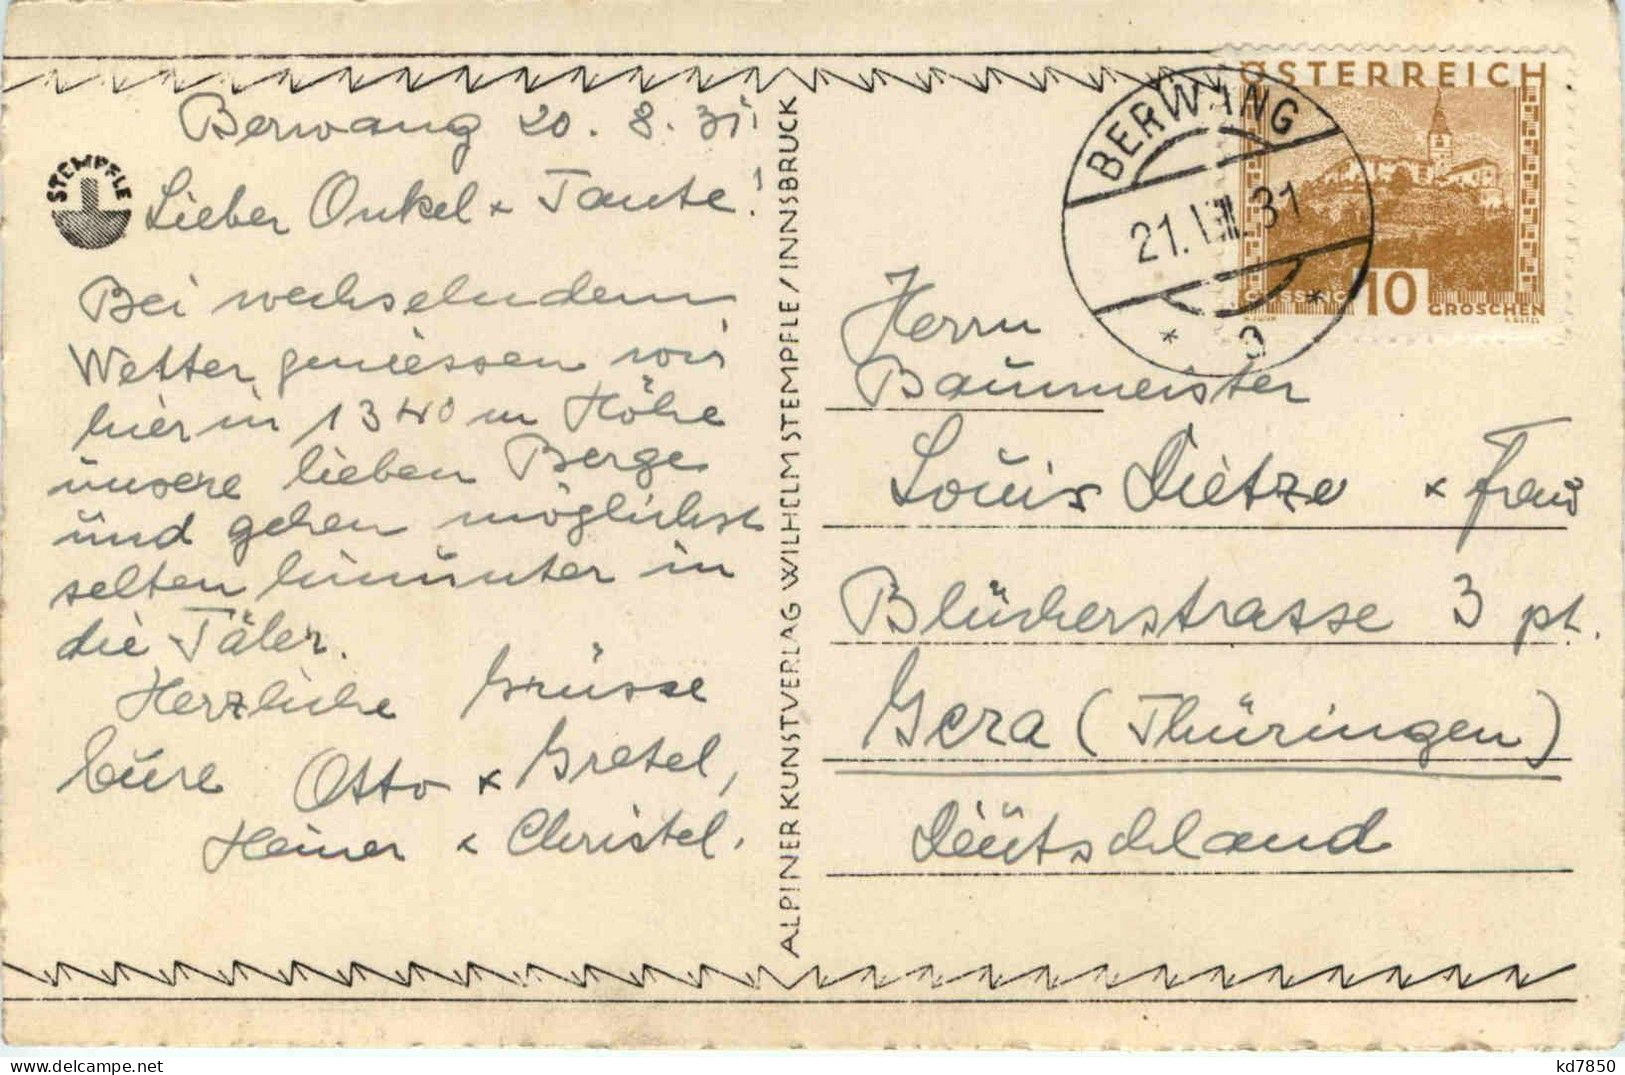 Berwang 20. 8. 31.
STEMPFLE
Lieber Onkel & Tante!
Bei wechselndem
Wetter geniessen wir
hier in 1340 m Höhe
unsere lieben Berge
und gehen möglichst
selten hinunter in
die Täler.
Herzliche Grüsse
Eure Otto & Gretel,
Heiner & Christel.
ALPINER KUNSTVERLAG WILHELM STEMPFLE / INNSBRUCK
ÖSTERREICH
GÜSSING
10 GROSCHEN
BERWANG
21.VIII.31
* a *
Herrn
Baumeister
Louis Dietze & Frau
Blücherstrasse 3 pt.
Gera (Thüringen)
Deutschland
delcampe.net
kd7850